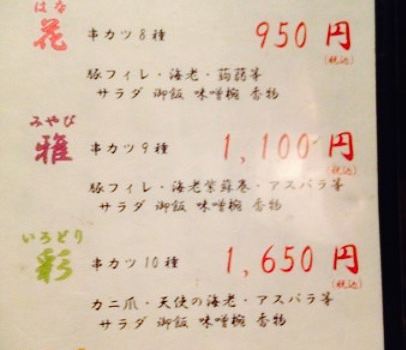 はな
花 串カツ8種 950円
(税込)
豚フィレ・海老・蒟蒻等
サラダ 御飯 味噌椀 香物
みやび
雅 串カツ9種 1,100円
(税込)
豚フィレ・海老紫蘇巻・アスパラ等
サラダ 御飯 味噌椀 香物
いろどり
彩 串カツ10種 1,650円
(税込)
カニ爪・天使の海老・アスパラ等
サラダ 御飯 味噌椀 香物